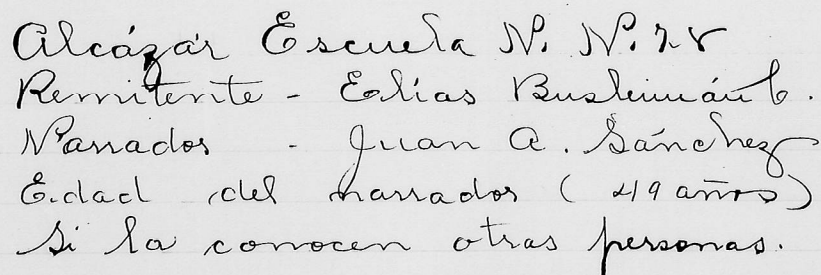 Alcázar Escuela N. N. 28
Remitente - Elías Busleimán C.
Narrador - Juan A. Sánchez
Edad del narrador ( 49 años)
Si la conocen otras personas.